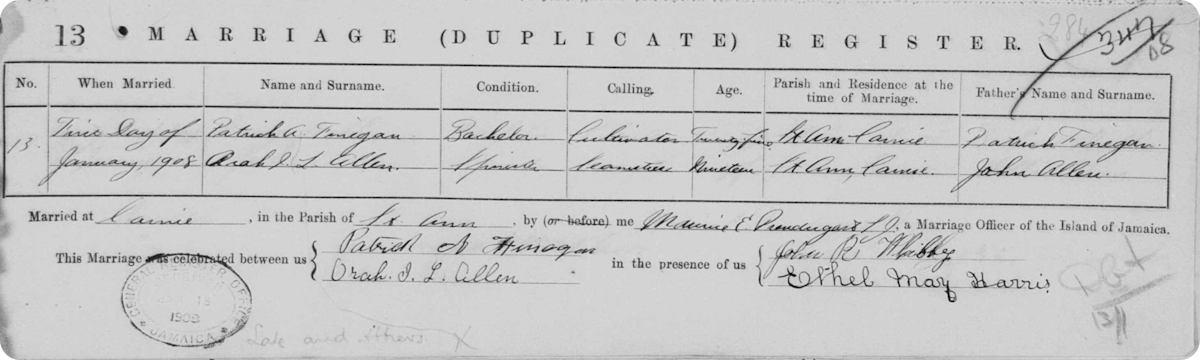 13 MARRIAGE (DUPLICATE) REGISTER.
No. When Married. Name and Surname. Condition. Calling. Age. Parish and Residence at the time of Marriage. Father's Name and Surname.
13. Day of Patrick A. Finegan Bachelor Cultivator Twenty five St Ann Patrick Finegan.
January, 1908 Orah I L Allen. Spinster Nineteen St Ann, John Allen.
Married at , in the Parish of St. Ann , by (or before) me Maurice E S.J. a Marriage Officer of the Island of Jamaica.
This Marriage was celebrated between us { Patrick A Finegan
Orah. I. L. Allen
in the presence of us { John R Whibby
Ethel May Harris
GENERAL REGISTER OFFICE
1908
JAMAICA
13